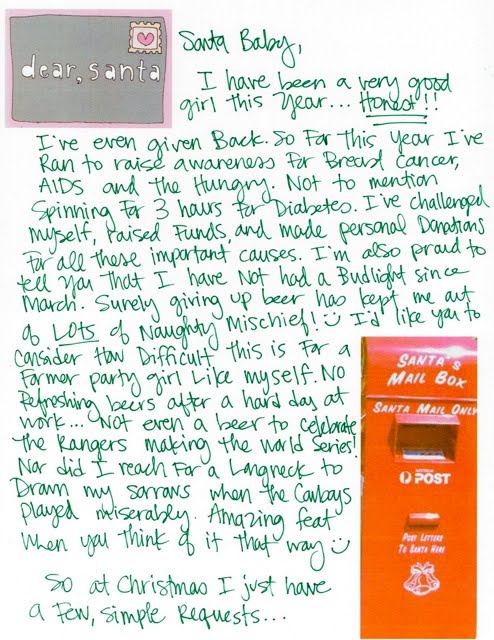 dear, santa
Santa Baby,
I have been a very good
girl this year... Honest!!
I've even given Back. So Far this Year I've
Ran to raise awareness For Breast Cancer,
AIDS and the Hungry. Not to mention
Spinning For 3 hours for Diabetes. I've challenged
myself, raised Funds, and made personal Donations
For all these important causes. I'm also proud to
tell You that I have Not had a Budlight since
March. Surely giving up beer has kept me out
of LOTS of Naughty Mischief! I'd like you to
consider How Difficult this is For a
Former party girl Like myself. No
Refreshing beers after a hard day at
work... Not even a beer to celebrate
the Rangers making the World Series!
Nor did I reach For a Longneck to
Drown my sorrows when the Cowboys
played miserably. Amazing feat
when you think of it that way
So at Christmas I just have
a Few, Simple Requests...
SANTA'S
MAIL BOX
SANTA MAIL ONLY
AUSTRALIA
POST
POST LETTERS
TO SANTA HERE